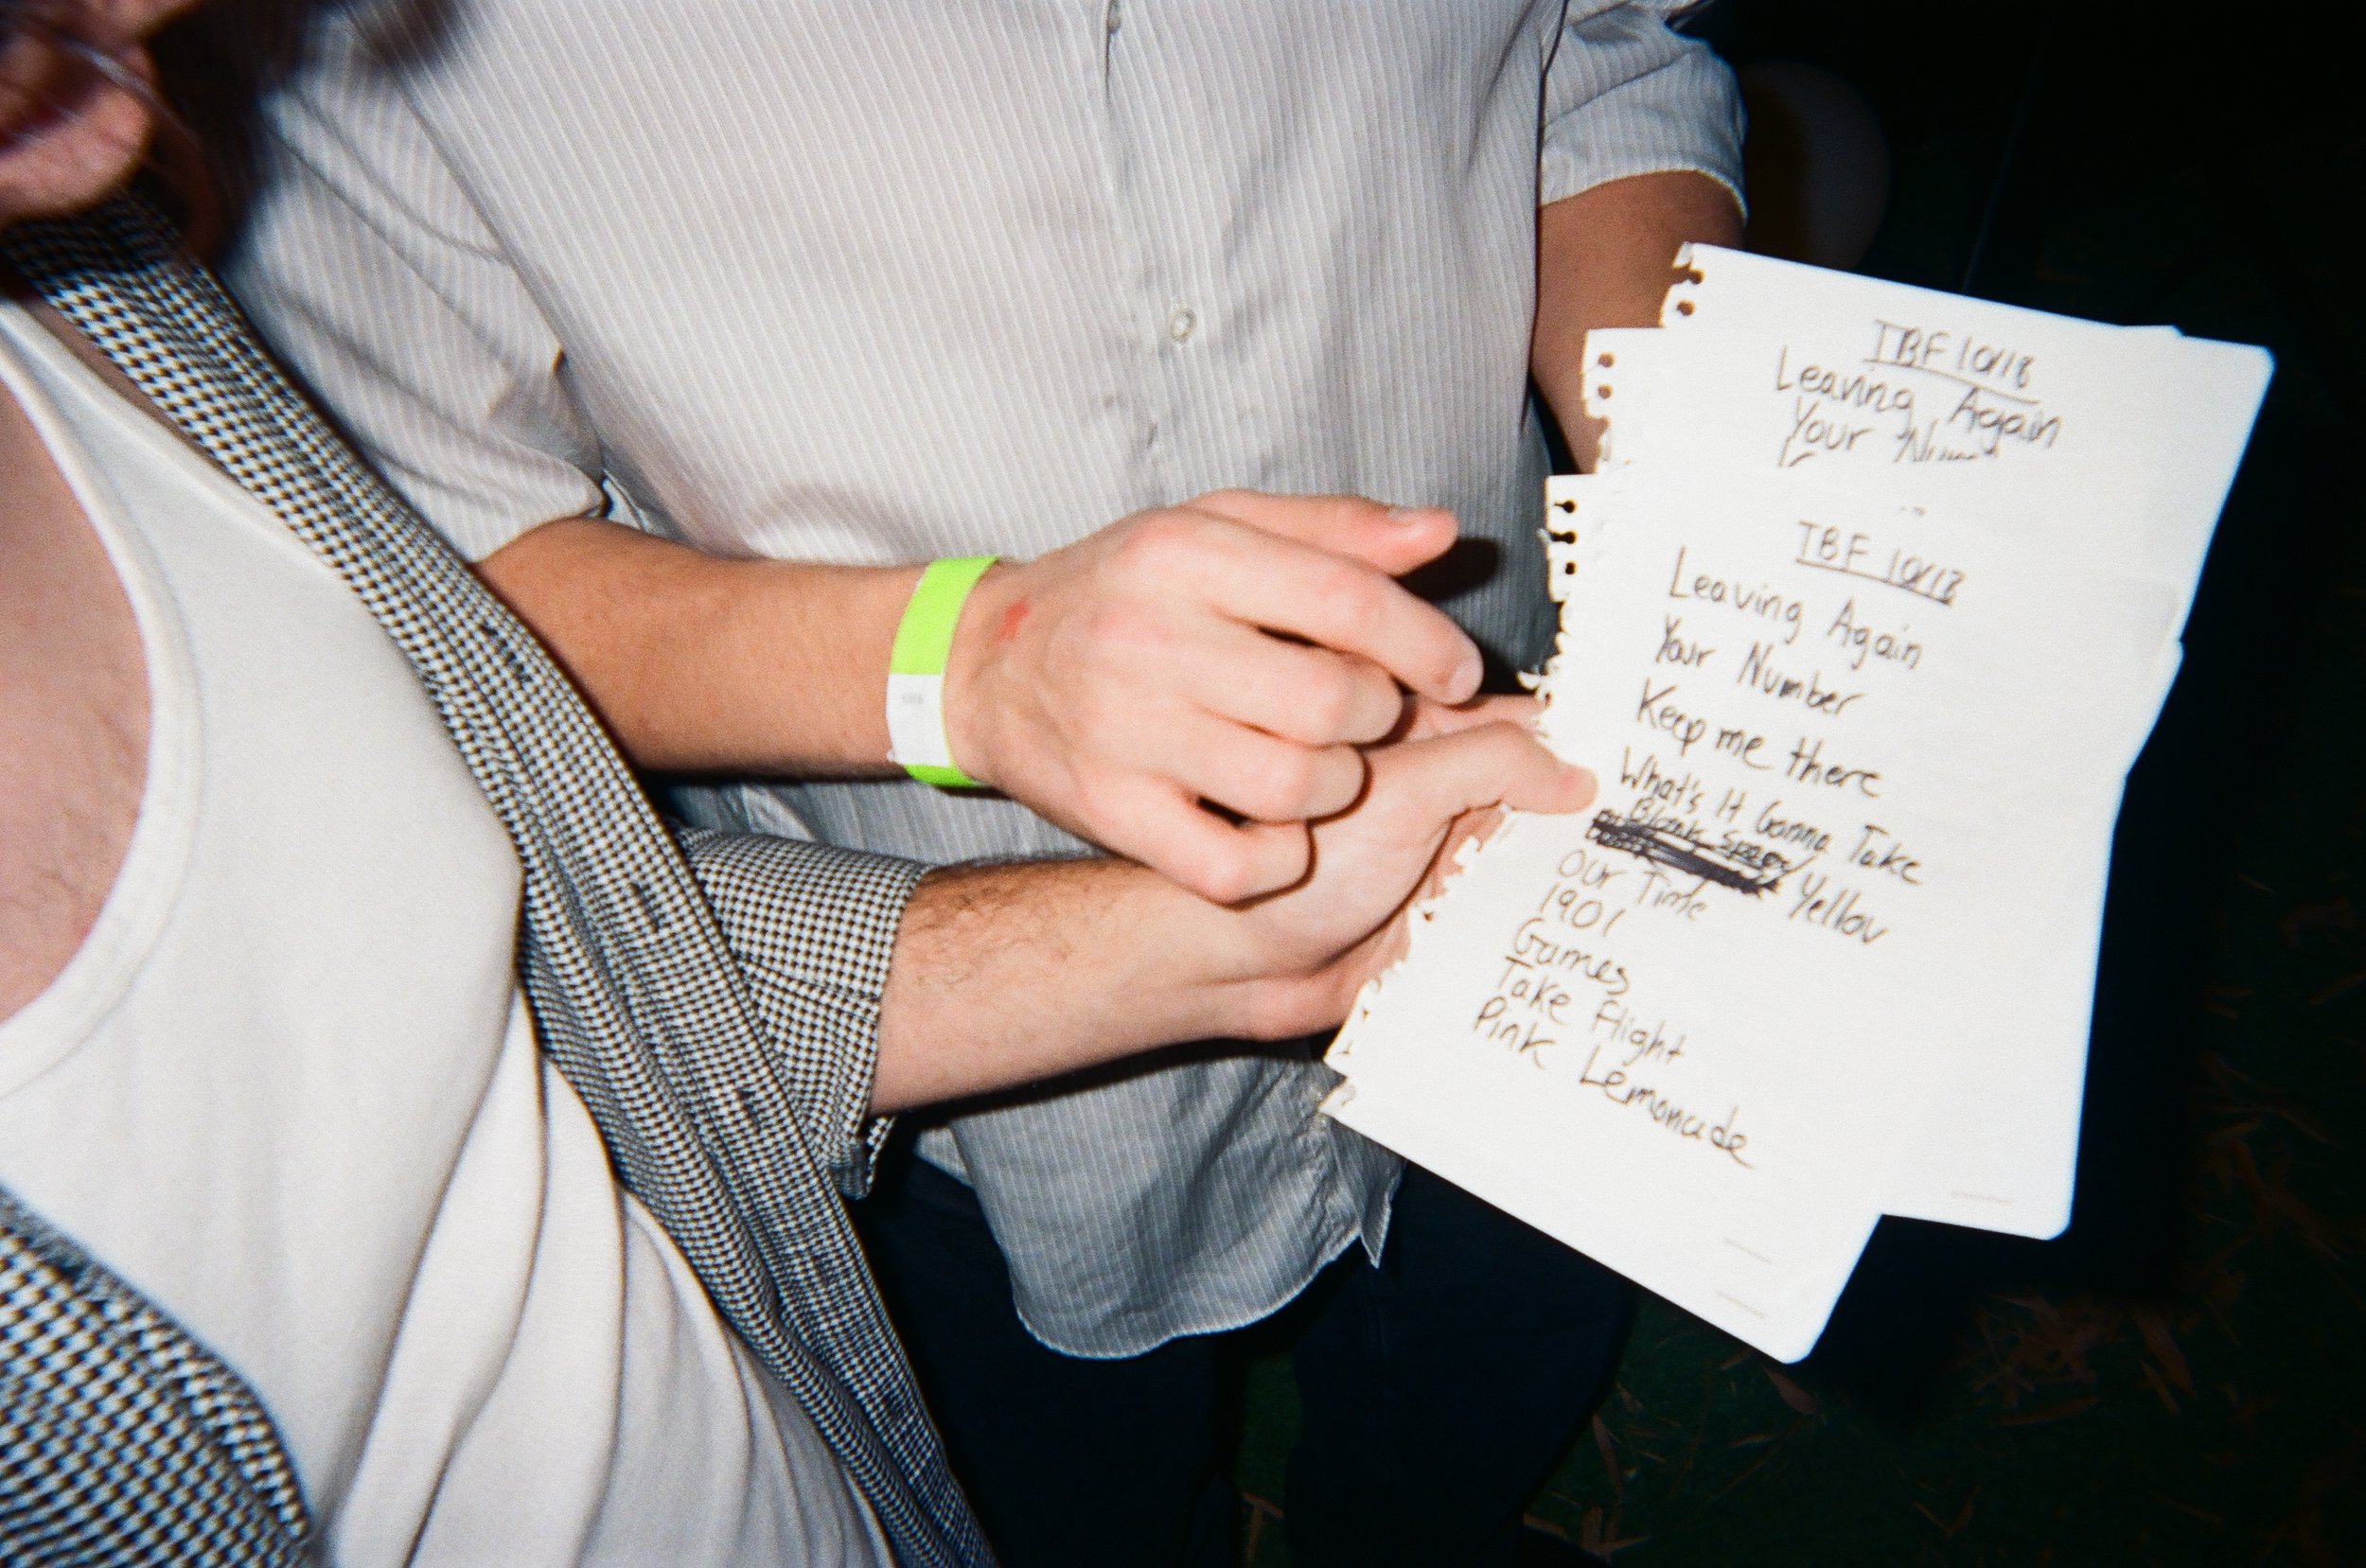 TBF 10/18
Leaving Again
Your
TBF 10/18
Leaving Again
Your Number
Keep me there
What's It Gonna Take
Blank space/ Yellow
Our Time
1901
Games
Take flight
Pink Lemonade